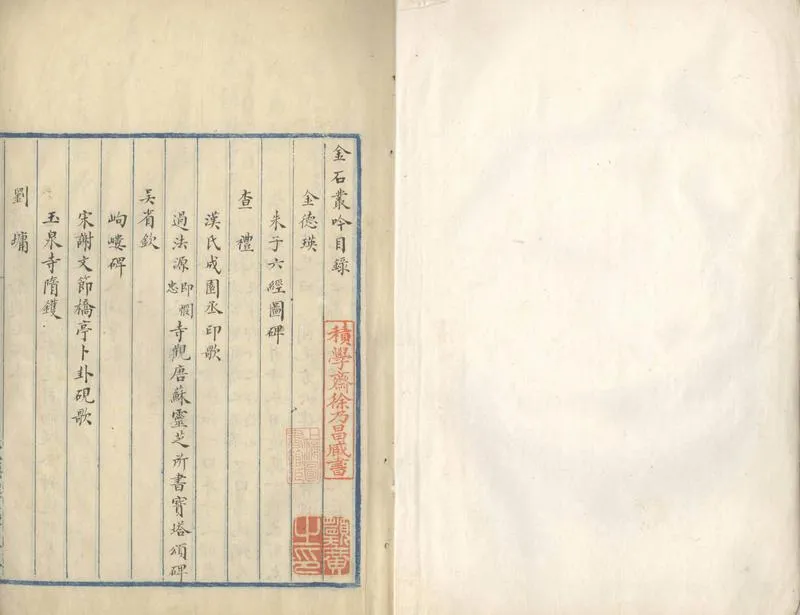 金石叢吟目録
金德瑛
朱子六經圖碑
查禮
漢氏成園丞印歌
過法源即憫忠寺觀唐蘇靈芝所書寶塔頌碑
吳省欽
岣嶁碑
宋謝文節橋亭卜卦硯歌
玉泉寺隋鑊
劉墉
積學齋徐乃昌藏書